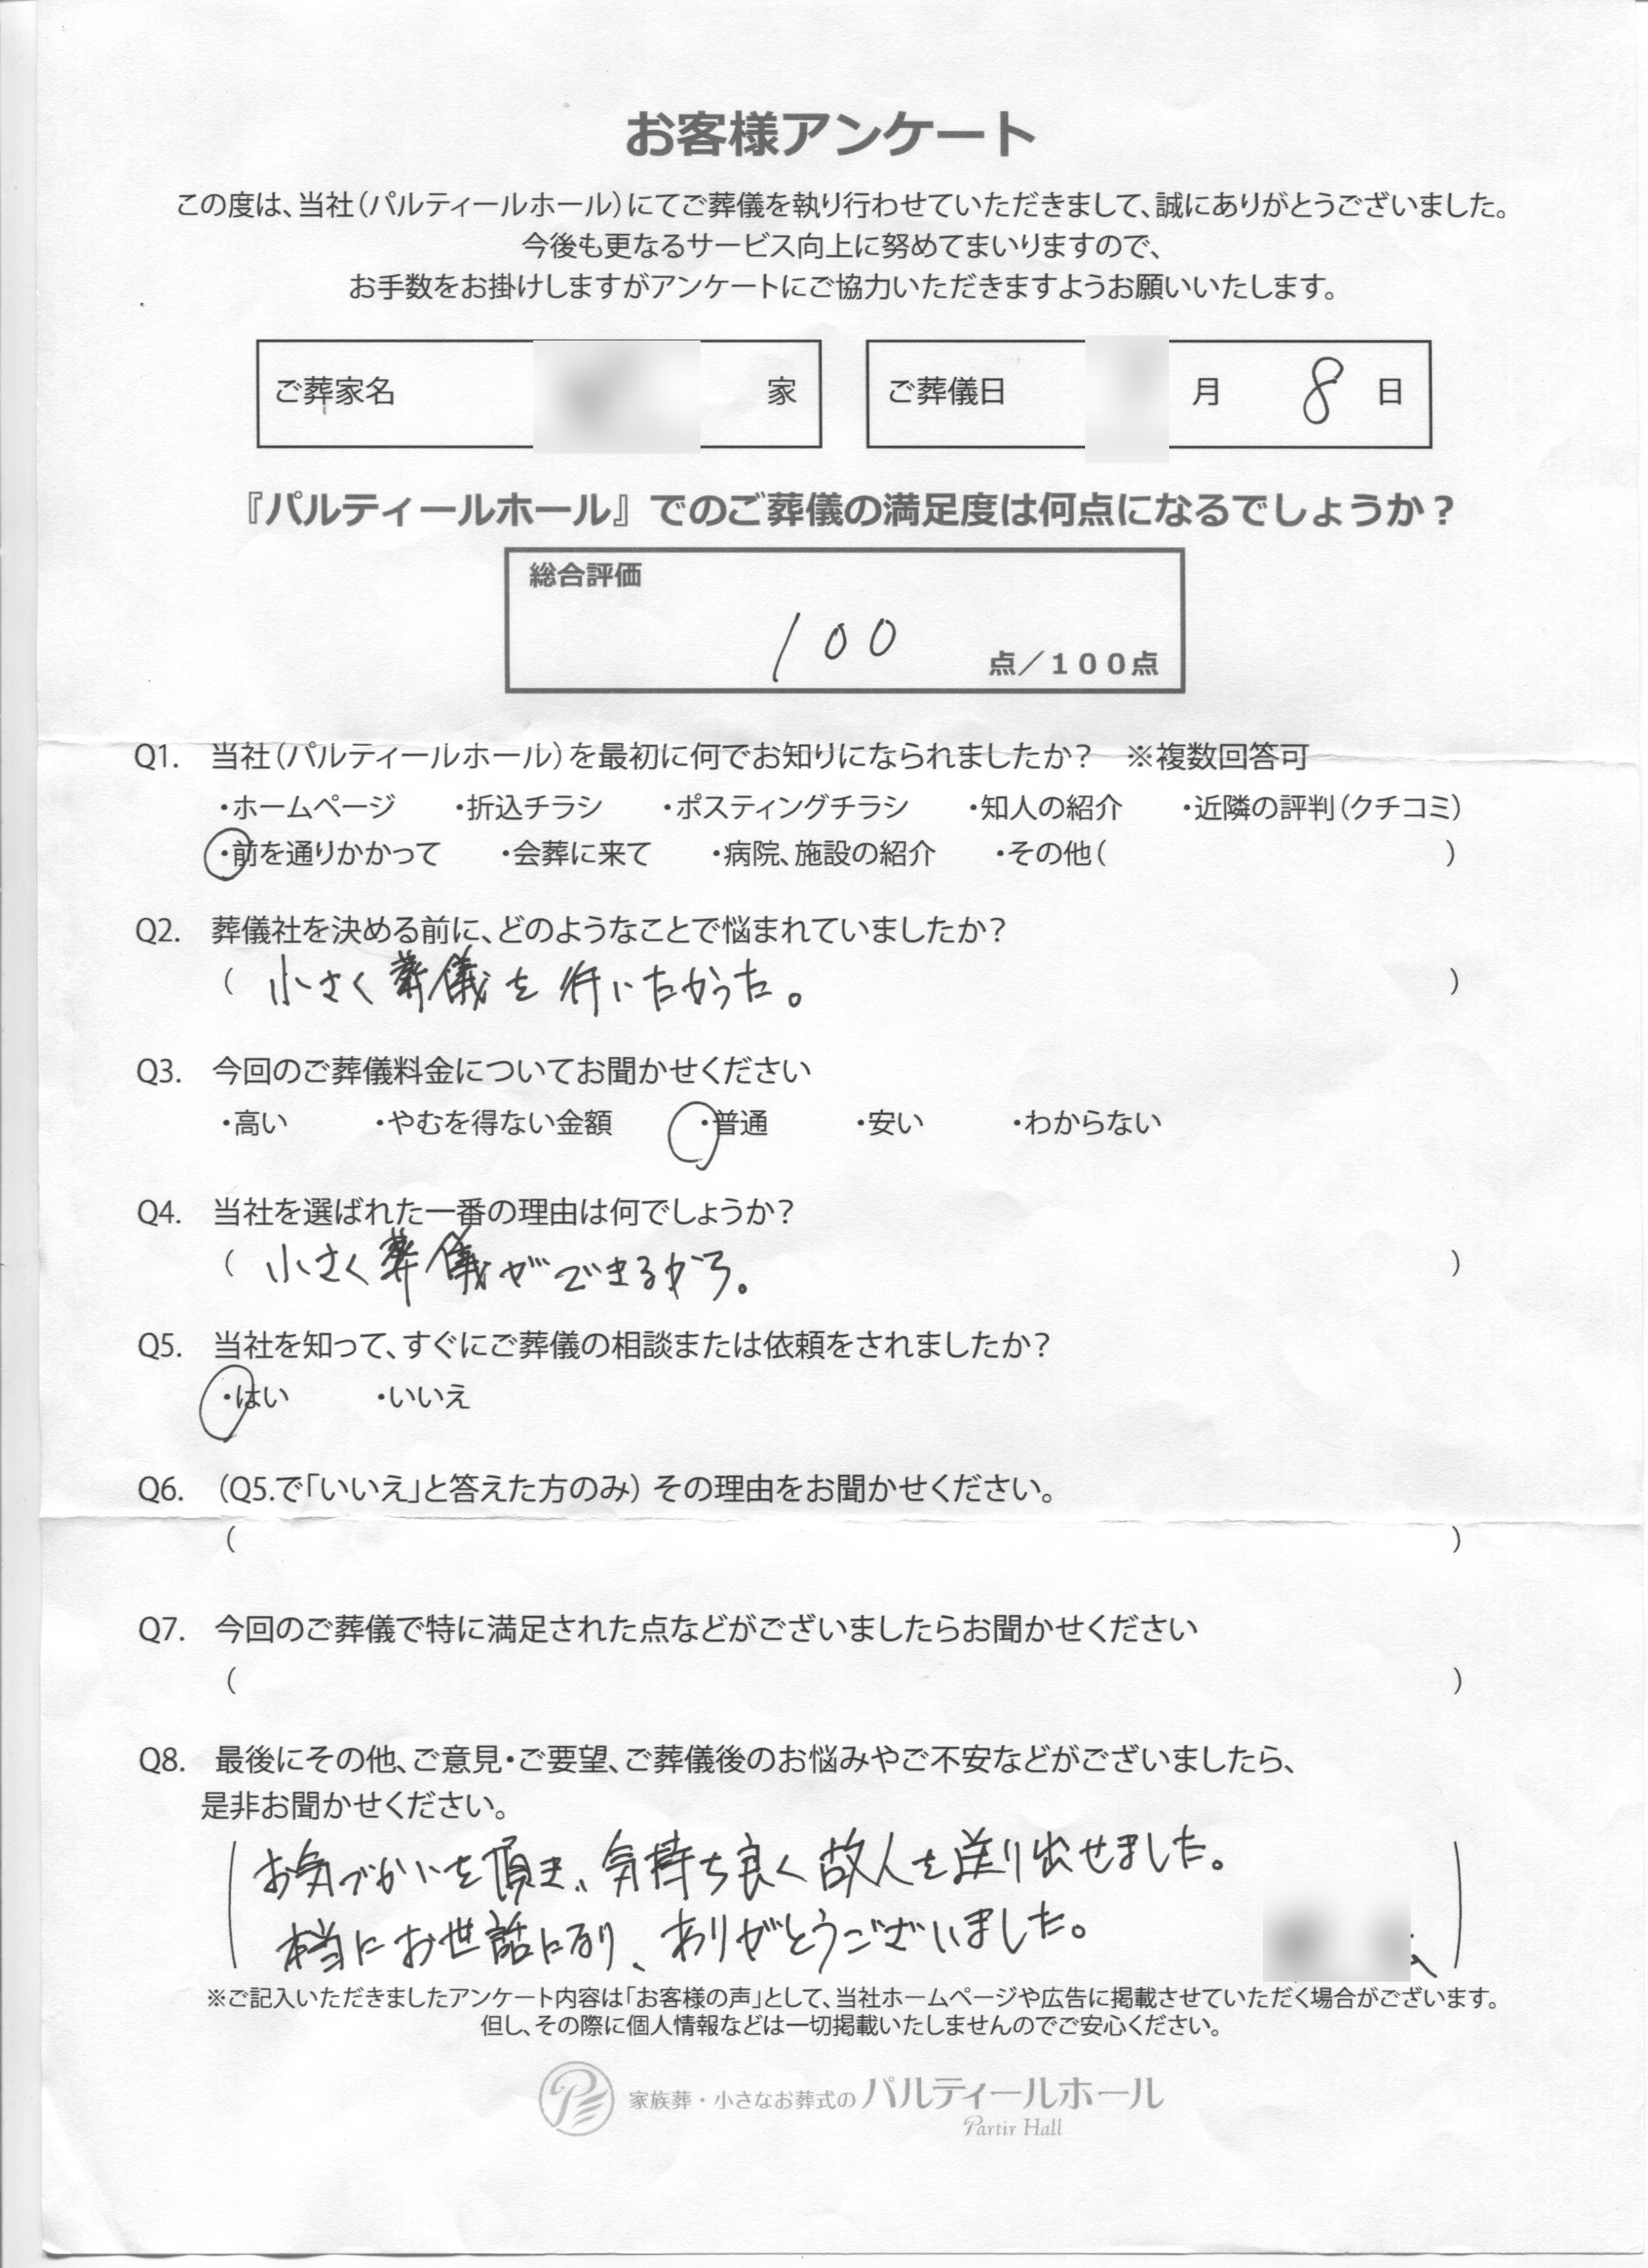 お客様アンケート
この度は、当社（パルティールホール）にてご葬儀を執り行わせていただきまして、誠にありがとうございました。
今後も更なるサービス向上に努めてまいりますので、
お手数をお掛けしますがアンケートにご協力いただきますようお願いいたします。
ご葬家名 家 ご葬儀日 月 8 日
『パルティールホール』でのご葬儀の満足度は何点になるでしょうか？
総合評価
100 点／100点
Q1. 当社（パルティールホール）を最初に何でお知りになられましたか？ ※複数回答可
・ホームページ ・折込チラシ ・ポスティングチラシ ・知人の紹介 ・近隣の評判（クチコミ）
・前を通りかかって ・会葬に来て ・病院、施設の紹介 ・その他（ ）
Q2. 葬儀社を決める前に、どのようなことで悩まれていましたか？
（ 小さく葬儀を行いたかった。 ）
Q3. 今回のご葬儀料金についてお聞かせください
・高い ・やむを得ない金額 ・普通 ・安い ・わからない
Q4. 当社を選ばれた一番の理由は何でしょうか？
（ 小さく葬儀ができるから。 ）
Q5. 当社を知って、すぐにご葬儀の相談または依頼をされましたか？
・はい ・いいえ
Q6. （Q5.で「いいえ」と答えた方のみ）その理由をお聞かせください。
（ ）
Q7. 今回のご葬儀で特に満足された点などがございましたらお聞かせください
（ ）
Q8. 最後にその他、ご意見・ご要望、ご葬儀後のお悩みやご不安などがございましたら、
是非お聞かせください。
お気づかいを頂き、気持ち良く故人を送り出せました。
本当にお世話になり、ありがとうございました。
※ご記入いただきましたアンケート内容は「お客様の声」として、当社ホームページや広告に掲載させていただく場合がございます。
但し、その際に個人情報などは一切掲載いたしませんのでご安心ください。
家族葬・小さなお葬式の パルティールホール
Partir Hall